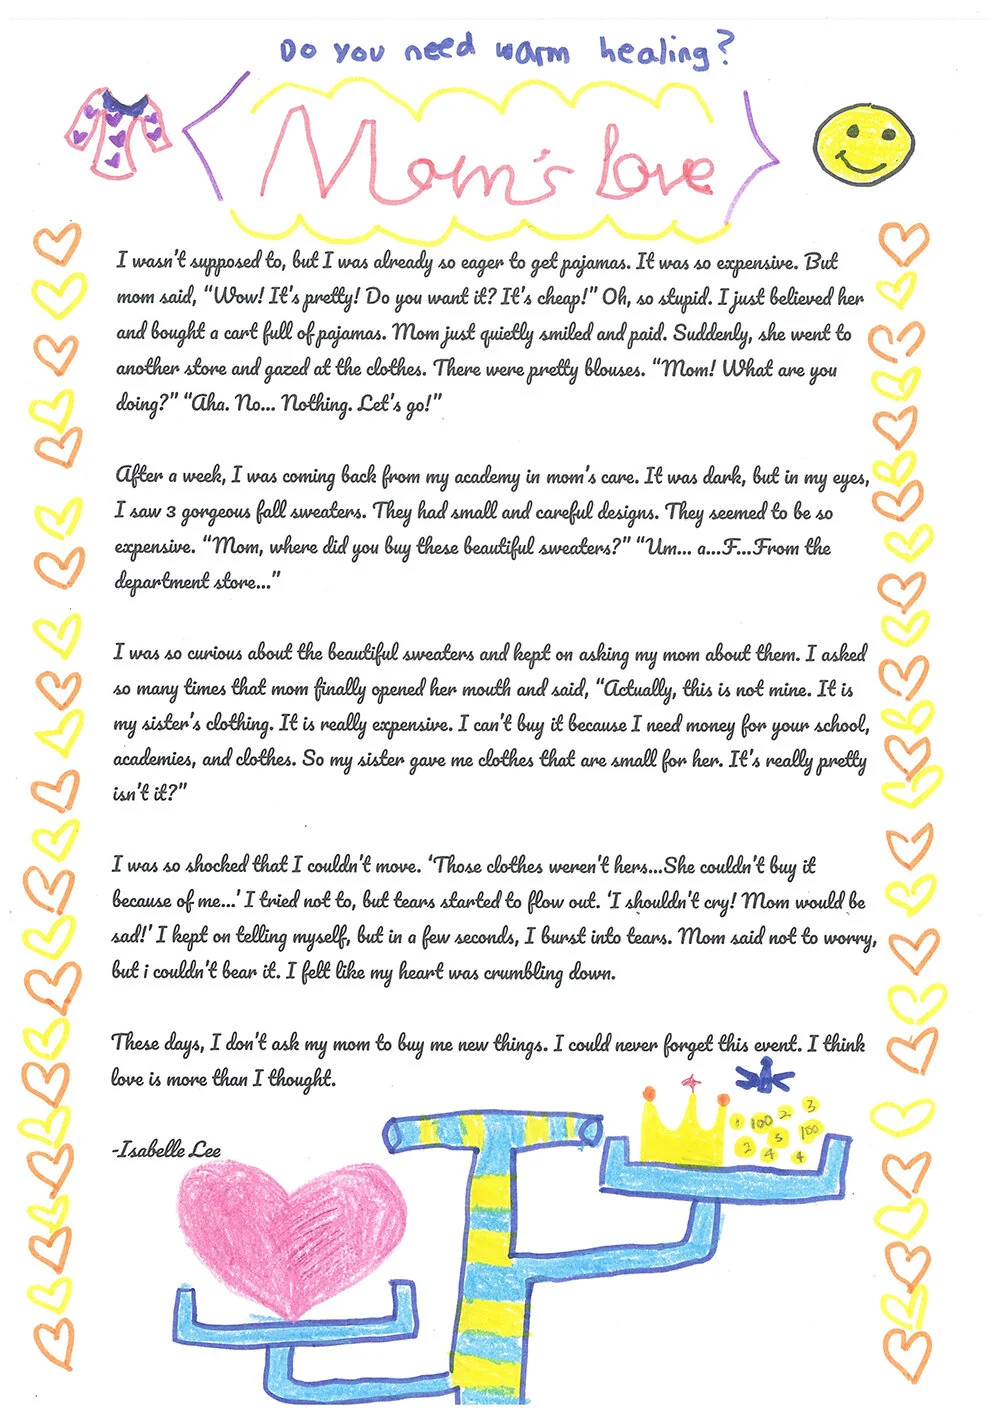 Do you need warm healing?
Mom's Love
I wasn't supposed to, but I was already so eager to get pajamas. It was so expensive. But
mom said, "Wow! It's pretty! Do you want it? It's cheap!" Oh, so stupid. I just believed her
and bought a cart full of pajamas. Mom just quietly smiled and paid. Suddenly, she went to
another store and gazed at the clothes. There were pretty blouses. "Mom! What are you
doing?" "Aha. No... Nothing. Let's go!"
After a week, I was coming back from my academy in mom's care. It was dark, but in my eyes,
I saw 3 gorgeous fall sweaters. They had small and careful designs. They seemed to be so
expensive. "Mom, where did you buy these beautiful sweaters?" "Um... a...F...From the
department store..."
I was so curious about the beautiful sweaters and kept on asking my mom about them. I asked
so many times that mom finally opened her mouth and said, "Actually, this is not mine. It is
my sister's clothing. It is really expensive. I can't buy it because I need money for your school,
academies, and clothes. So my sister gave me clothes that are small for her. It's really pretty
isn't it?"
I was so shocked that I couldn't move. 'Those clothes weren't hers...She couldn't buy it
because of me...' I tried not to, but tears started to flow out. 'I shouldn't cry! Mom would be
sad!' I kept on telling myself, but in a few seconds, I burst into tears. Mom said not to worry,
but i couldn't bear it. I felt like my heart was crumbling down.
These days, I don't ask my mom to buy me new things. I could never forget this event. I think
love is more than I thought.
-Isabelle Lee
1 100 2 3
5 100
2 4 4